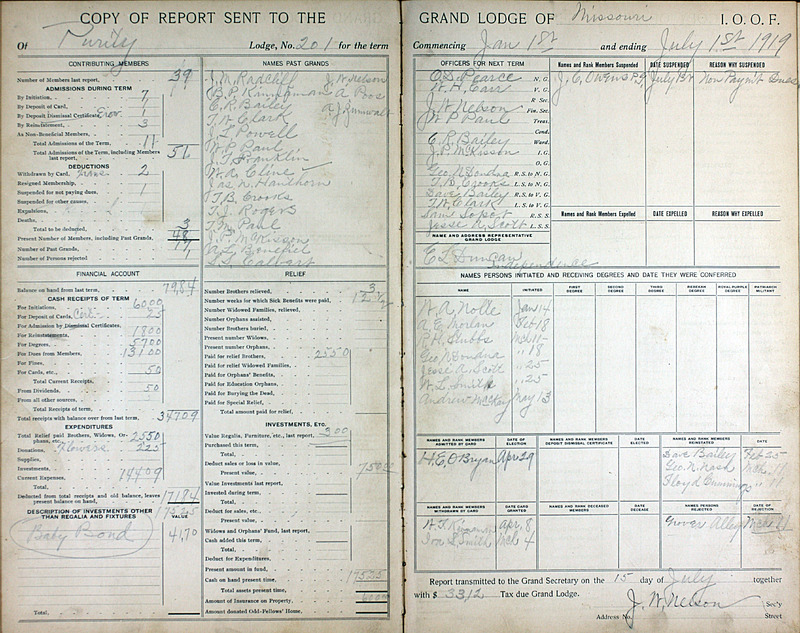 COPY OF REPORT SENT TO THE
Of Purity Lodge, No. 201 for the term
CONTRIBUTING MEMBERS
Number of Members last report, 39
ADMISSIONS DURING TERM
By Initiation, 7
By Deposit of Card, 1
By Deposit Dismissal Certificate,
By Reinstatement, 3
As Non-Beneficial Members,
Total Admissions of the Term,
Total Admissions of the Term, including Members last report, 51
DEDUCTIONS
Withdrawn by Card, 2
Resigned Membership,
Suspended for not paying dues, 1
Suspended for other causes,
Expulsions,
Deaths,
Total to be deducted, 3
Present Number of Members, including Past Grands, 48
Number of Past Grands,
Number of Persons rejected
NAMES PAST GRANDS
J. M. Radcliff J. W. Nelson
E. R. Bailey
T. H. Clark
J. L. Powell
W. P. Paul
J. T. Franklin
W. R. Cline
T. B. Crooks
T. J. Rogers
FINANCIAL ACCOUNT
Balance on hand from last term, 7984
CASH RECEIPTS OF TERM
For Initiations, 6000
For Deposit of Cards, Cert. 25
For Admission by Dismissal Certificates,
For Reinstatements, 1800
For Degrees, 5700
For Dues from Members, 13100
For Fines,
For Cards, etc., 50
Total Current Receipts,
From Dividends, 50
From all other sources,
Total Receipts of term,
Total receipts with balance over from last term, 34709
EXPENDITURES
Total Relief paid Brothers, Widows, Orphans, etc., 2550
Donations, Flowers 225
Supplies,
Investments,
Current Expenses, 14409
Total,
Deducted from total receipts and old balance, leaves present balance on hand, 17184
17525
DESCRIPTION OF INVESTMENTS OTHER THAN REGALIA AND FIXTURES
VALUE
Baby Bond 4170
Total,
RELIEF
Number Brothers relieved, 3
Number weeks for which Sick Benefits were paid,
Number Widowed Families, relieved,
Number Orphans assisted,
Number Brothers buried,
Present number Widows,
Present number Orphans,
Paid for relief Brothers, 2550
Paid for relief Widowed Families,
Paid for Orphans' Benefits,
Paid for Education Orphans,
Paid for Burying the Dead,
Paid for Special Relief,
Total amount paid for relief,
INVESTMENTS, Etc.
Value Regalia, Furniture, etc., last report,
Purchased this term,
Total,
Deduct sales or loss in value,
Present value,
Value Investments last report,
Invested during term,
Total,
Deduct for sales, etc.,
Present value,
Widows and Orphans' Fund, last report,
Cash added this term,
Total,
Deduct for Expenditures,
Present amount in fund,
Cash on hand present time, 17525
Total assets present time,
Amount of Insurance on Property,
Amount donated Odd-Fellows' Home,
GRAND LODGE OF Missouri I. O. O. F.
Commencing Jan 1st and ending July 1st 1919
OFFICERS FOR NEXT TERM
O. S. Pearce N. G.
W. H. Carr V. G.
R Sec.
J. W. Nelson Fin. Sec.
W. P. Paul Treas.
Cond.
E. R. Bailey Ward.
I. G.
O. G.
R. S. to N. G.
T. B. Crooks L. S. to N. G.
Dave Bailey R. S. to V. G.
T. H. Clark L. S. to V. G.
R. S. S.
Jesse A. Scott L. S. S.
NAME AND ADDRESS REPRESENTATIVE GRAND LODGE
E L Duncan
Independence
Names and Rank Members Suspended DATE SUSPENDED REASON WHY SUSPENDED
J. C. Owens P.G. July 1st Non Paymt Dues
Names and Rank Members Expelled DATE EXPELLED REASON WHY EXPELLED
NAMES PERSONS INITIATED AND RECEIVING DEGREES AND DATE THEY WERE CONFERRED
NAME INITIATED FIRST DEGREE SECOND DEGREE THIRD DEGREE REBEKAH DEGREE ROYAL PURPLE DEGREE PATRIARCH MILITANT
W. A. Nolte Jan 14
A. E. Morlan Feb 18
R. H. Stubbs Mch 11
" 18
Jesse A. Scott " 25
W. L. Smith " 25
Andrew McKay May 13
NAMES AND RANK MEMBERS ADMITTED BY CARD DATE OF ELECTION NAMES AND RANK MEMBERS DEPOSIT DISMISSAL CERTIFICATE DATE ELECTED NAMES AND RANK MEMBERS REINSTATED DATE
H. E. O'Bryan Apr 29
Dave Bailey Feb 25
Geo. N. Nash Mch
Floyd Cummings "
NAMES AND RANK MEMBERS WITHDRAWN BY CARD DATE CARD GRANTED NAMES AND RANK DECEASED MEMBERS DATE DECEASE NAMES PERSONS REJECTED DATE OF REJECTION
Apr. 8
Smith Mch 4
Grover Alley Mch
Report transmitted to the Grand Secretary on the 15 day of July together
with $ 3312 Tax due Grand Lodge.
J. W. Nelson Sec'y
Address No. Street